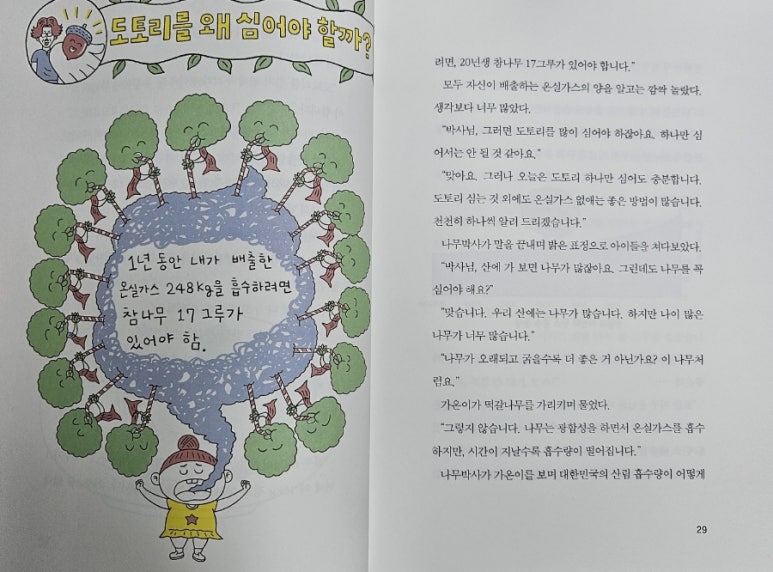 도토리를 왜 심어야 할까?
1년 동안 내가 배출한
온실가스 248kg을 흡수하려면
참나무 17그루가
있어야 함.
려면, 20년생 참나무 17그루가 있어야 합니다."
모두 자신이 배출하는 온실가스의 양을 알고는 깜짝 놀랐다.
생각보다 너무 많았다.
"박사님, 그러면 도토리를 많이 심어야 하잖아요. 하나만 심
어서는 안 될 것 같아요."
"맞아요. 그러나 오늘은 도토리 하나만 심어도 충분합니다.
도토리 심는 것 외에도 온실가스 없애는 좋은 방법이 많습니다.
천천히 하나씩 알려 드리겠습니다."
나무박사가 말을 끝내며 밝은 표정으로 아이들을 쳐다보았다.
"박사님, 산에 가 보면 나무가 많잖아요. 그런데도 나무를 꼭
심어야 해요?"
"맞습니다. 우리 산에는 나무가 많습니다. 하지만 나이 많은
나무가 너무 많습니다."
"나무가 오래되고 굵을수록 더 좋은 거 아닌가요? 이 나무처
럼요."
가온이가 떡갈나무를 가리키며 물었다.
"그렇지 않습니다. 나무는 광합성을 하면서 온실가스를 흡수
하지만, 시간이 지날수록 흡수량이 떨어집니다."
나무박사가 가온이를 보며 대한민국의 산림 흡수량이 어떻게
29